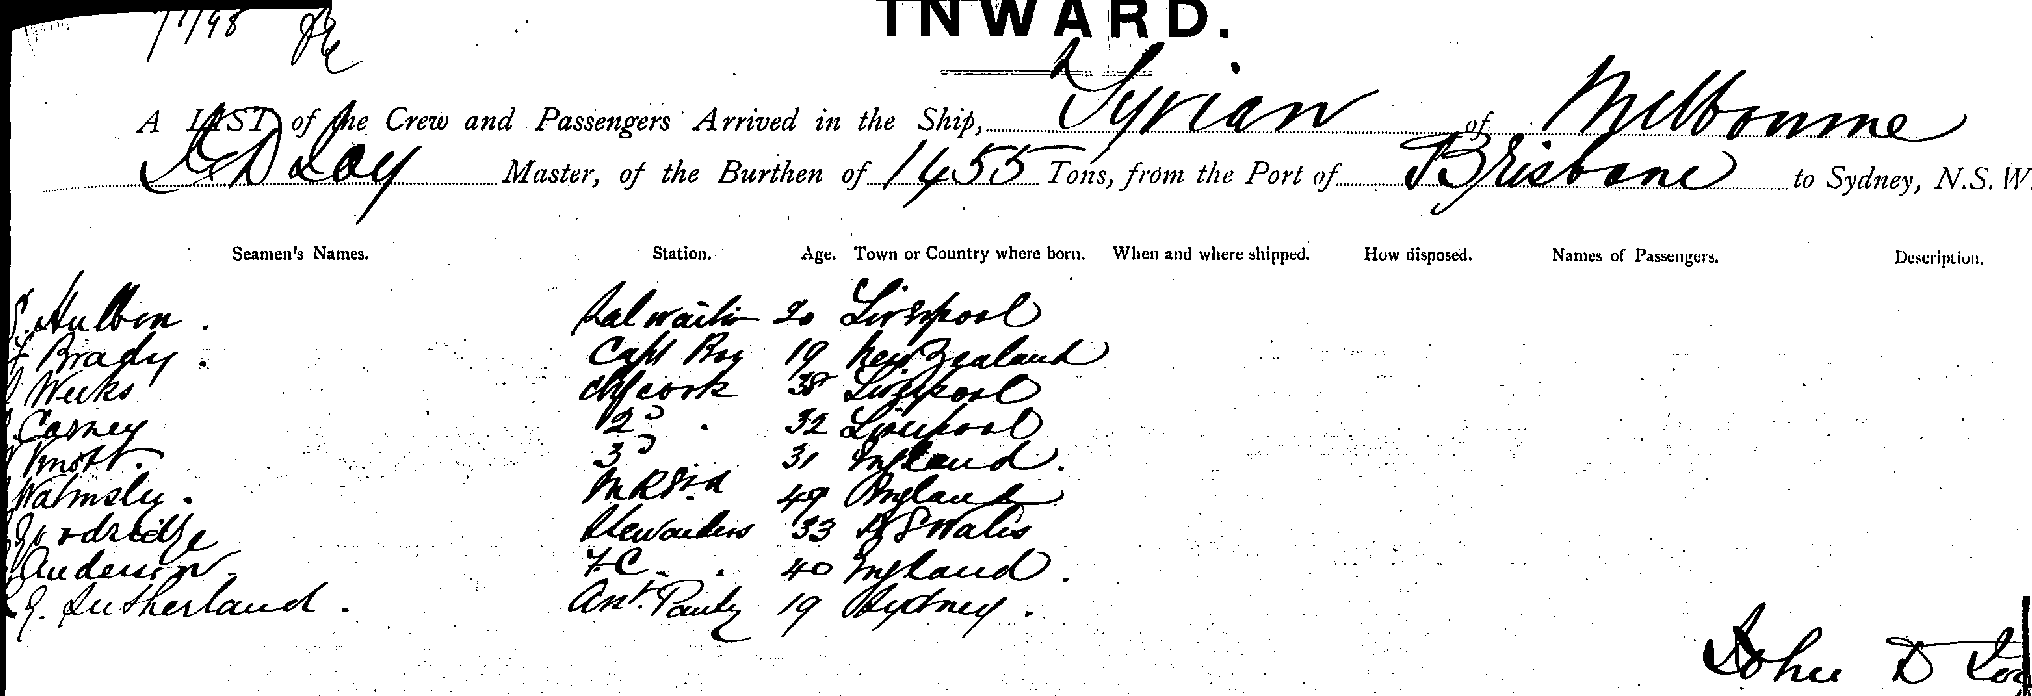 7/1/98
INWARD.
A LIST of the Crew and Passengers Arrived in the Ship, Syrian of Melbourne
J D Loy Master, of the Burthen of 1455 Tons, from the Port of Brisbane to Sydney, N.S.W.
Seamen's Names. Station. Age. Town or Country where born. When and where shipped. How disposed. Names of Passengers. Description.
Hulbon. Sal waiter 20 Liverpool
Brady. Capt Boy 19 New Zealand
Weeks Ch cook 38 Liverpool
Carney 2d . 32 Liverpool
Knott. 3d 31 England.
Walmsley. M R Std 49 England
Woodridge Stewardess 33 N S Wales
Anderson F C. . 40 England.
E. Sutherland. Asst. Pantry 19 Sydney.
John D Loy